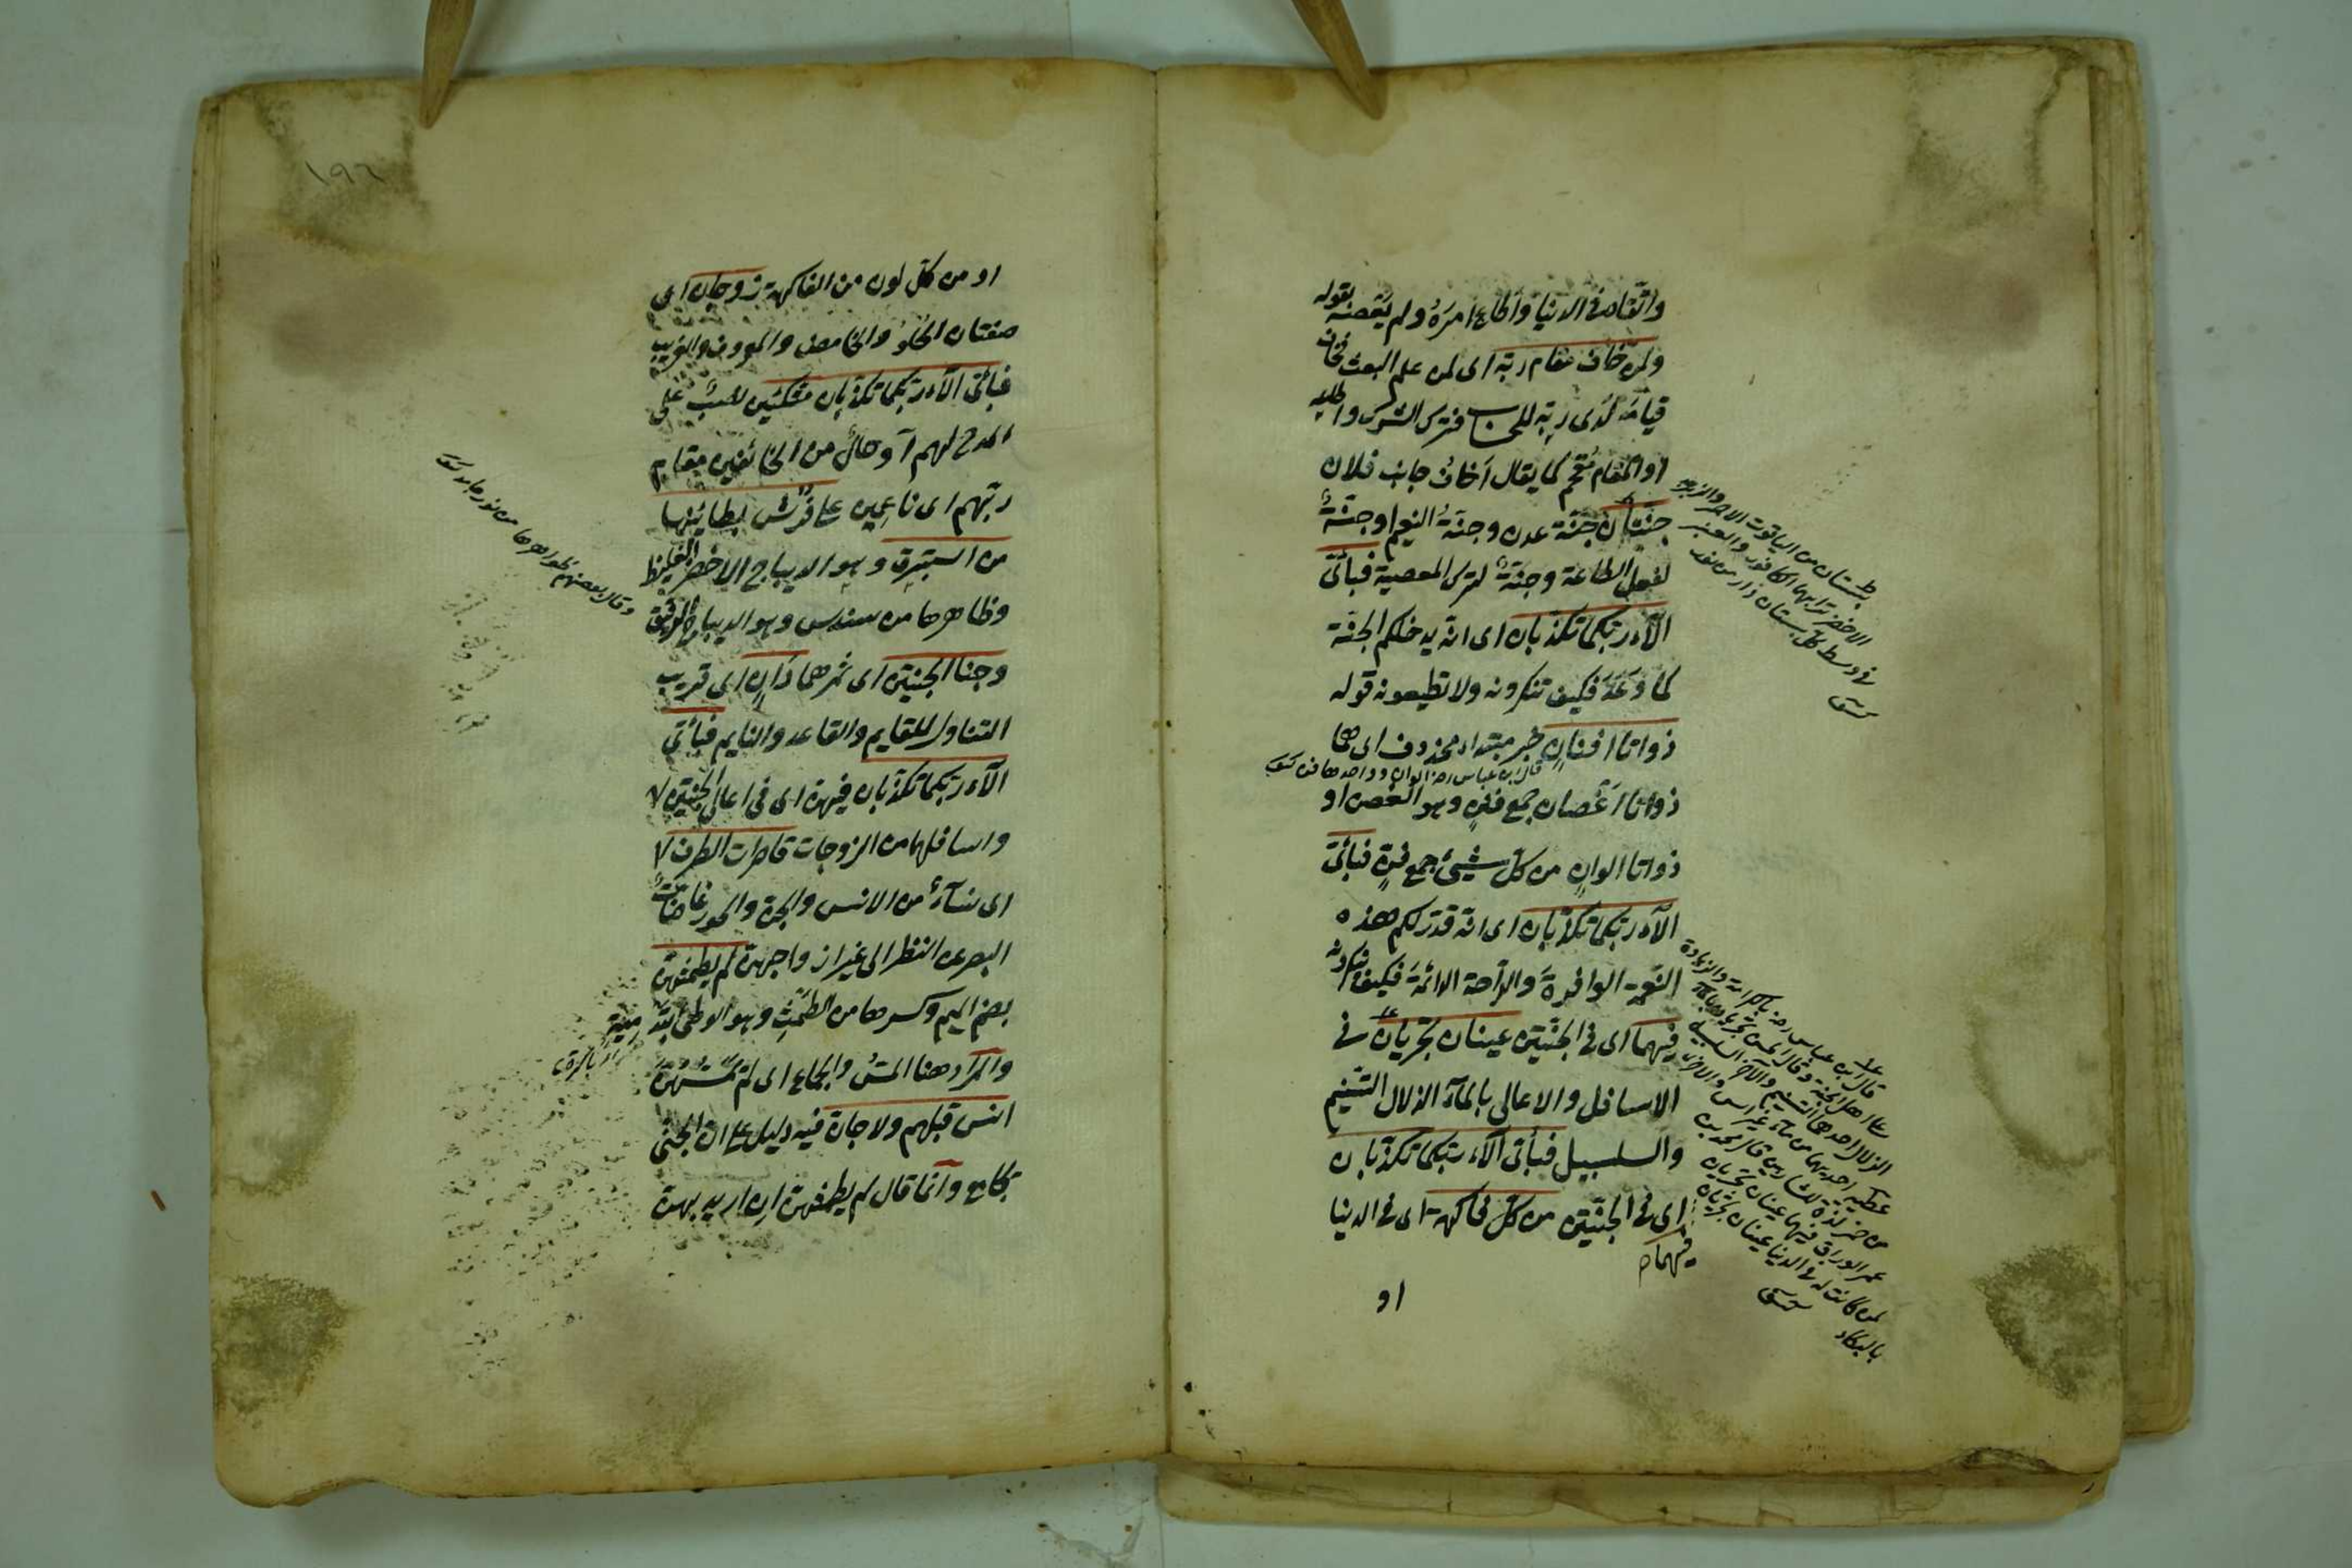 واتقاه في الدنيا واطاع امره ولم يعصه بقوله
ولمن خاف مقام ربه اى لمن علم البعث فخاف
قيامه لدى ربه للحساب فترك الشرك واطاعه
او المقام مقحم كما يقال اخاف جانب فلان
جنتان جنة عدن وجنة النعيم او جنة
لفعل الطاعة وجنة لترك المعصية فبأى
الآء ربكما تكذبان اى انه يدخلكم الجنة
كما وعد فكيف تنكرونه ولا تطيعونه قوله
ذواتا افنان خبر مبتداء محذوف اى هما
ذواتا اغصان جمع فنن وهو الغصن او
ذواتا الوان من كل شيئ جمع فن فبأى
الآء ربكما تكذبان اى انه قدر لكم هذه
النعمة الوافرة والراحة الدائمة فكيف تنكرونه
فيهما اى في الجنتين عينان تجريان في
الاسافل والاعالى بالمآء الزلال التسنيم
والسلسبيل فبأى الآء ربكما تكذبان
اى في الجنتين من كل فاكهة اى في الدنيا
فيهما
او
بستان من الياقوت الاحمر والزبرجد
الاخضر ترابهما الكافور والعنبر
في وسط كل بستان دار من نور
قال ابن عباس رضه الوان وواحدها فن
قال ابن عباس رضه بالكرامة والزيادة
على اهل الجنة وقال الحسن تجريان بالمآء
الزلال احدهما التسنيم والآخر السلسبيل
عطية احديهما من مآء غير اسن والاخرى
من خمر لذة للشاربين قال محمد بن
عمر الوراق فيهما عينان تجريان
لمن كانت له في الدنيا عينان تجريان
بالبكاء
١٩٢
او من كل لون من الفاكهة زوجان اى
صنفان الحلو والحامض والمعروف والغريب
فبأى الآء ربكما تكذبان متكئين نصب على
المدح لهم او حال من الخائفين مقام
ربهم اى ناعمين على فرش بطائنها
من استبرق وهو الديباج الاخضر الغليظ
وظاهرها من سندس وهو الديباج الرقيق
وجنا الجنتين اى ثمرهما دان اى قريب
التناول للقايم والقاعد والنايم فبأى
الآء ربكما تكذبان فيهن اى في اعالى الجنتين
واسافلهما من الزوجات قاصرات الطرف
اى نسآء من الانس والجن والحور غاضات
البصر عن النظر الى غير ازواجهن لم يطمثهن
بضم الميم وكسرها من الطمث وهو الوطئ بتدمية
والمراد هنا المس والجماع اى لم يمسسهن
انس قبلهم ولا جان فيه دليل على ان الجنى
يجامع وانما قال لم يطمثهن ان اريد بهن
وقال بعضهم ظواهرها من نور جامد